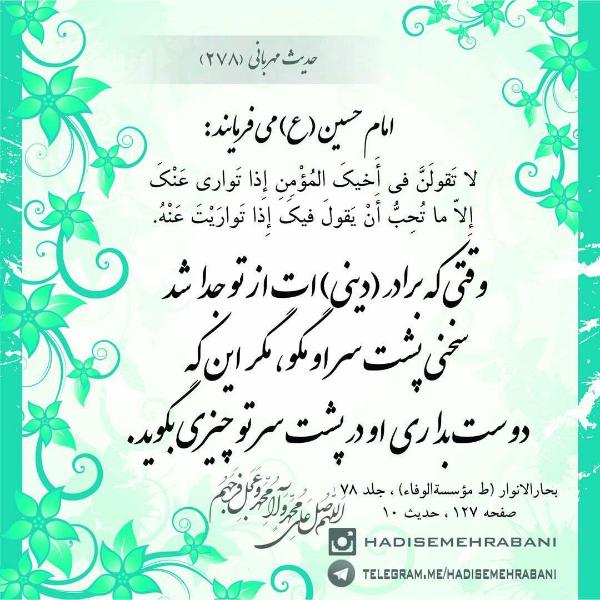 حدیث مهربانی (۲۷۸)
امام حسین (ع) می فرمایند:
لا تَقولَنَّ فی أَخیکَ المُؤْمِنِ إذا تَواری عَنْکَ
إِلاّ ما تُحِبُّ أَنْ یَقولَ فیکَ إِذا تَوارَیْتَ عَنْهُ.
وقتی که برادر (دینی) ات از تو جدا شد
سخنی پشت سر او مگو، مگر این که
دوست بداری او در پشت سر تو چیزی بگوید.
بحارالانوار (ط مؤسسةالوفاء) ، جلد ۷۸
صفحه ۱۲۷ ، حدیث ۱۰
اللّهم صل علی محمد وآل محمد وعجل فرجهم
HADISEMEHRABANI
TELEGRAM.ME/HADISEMEHRABANI